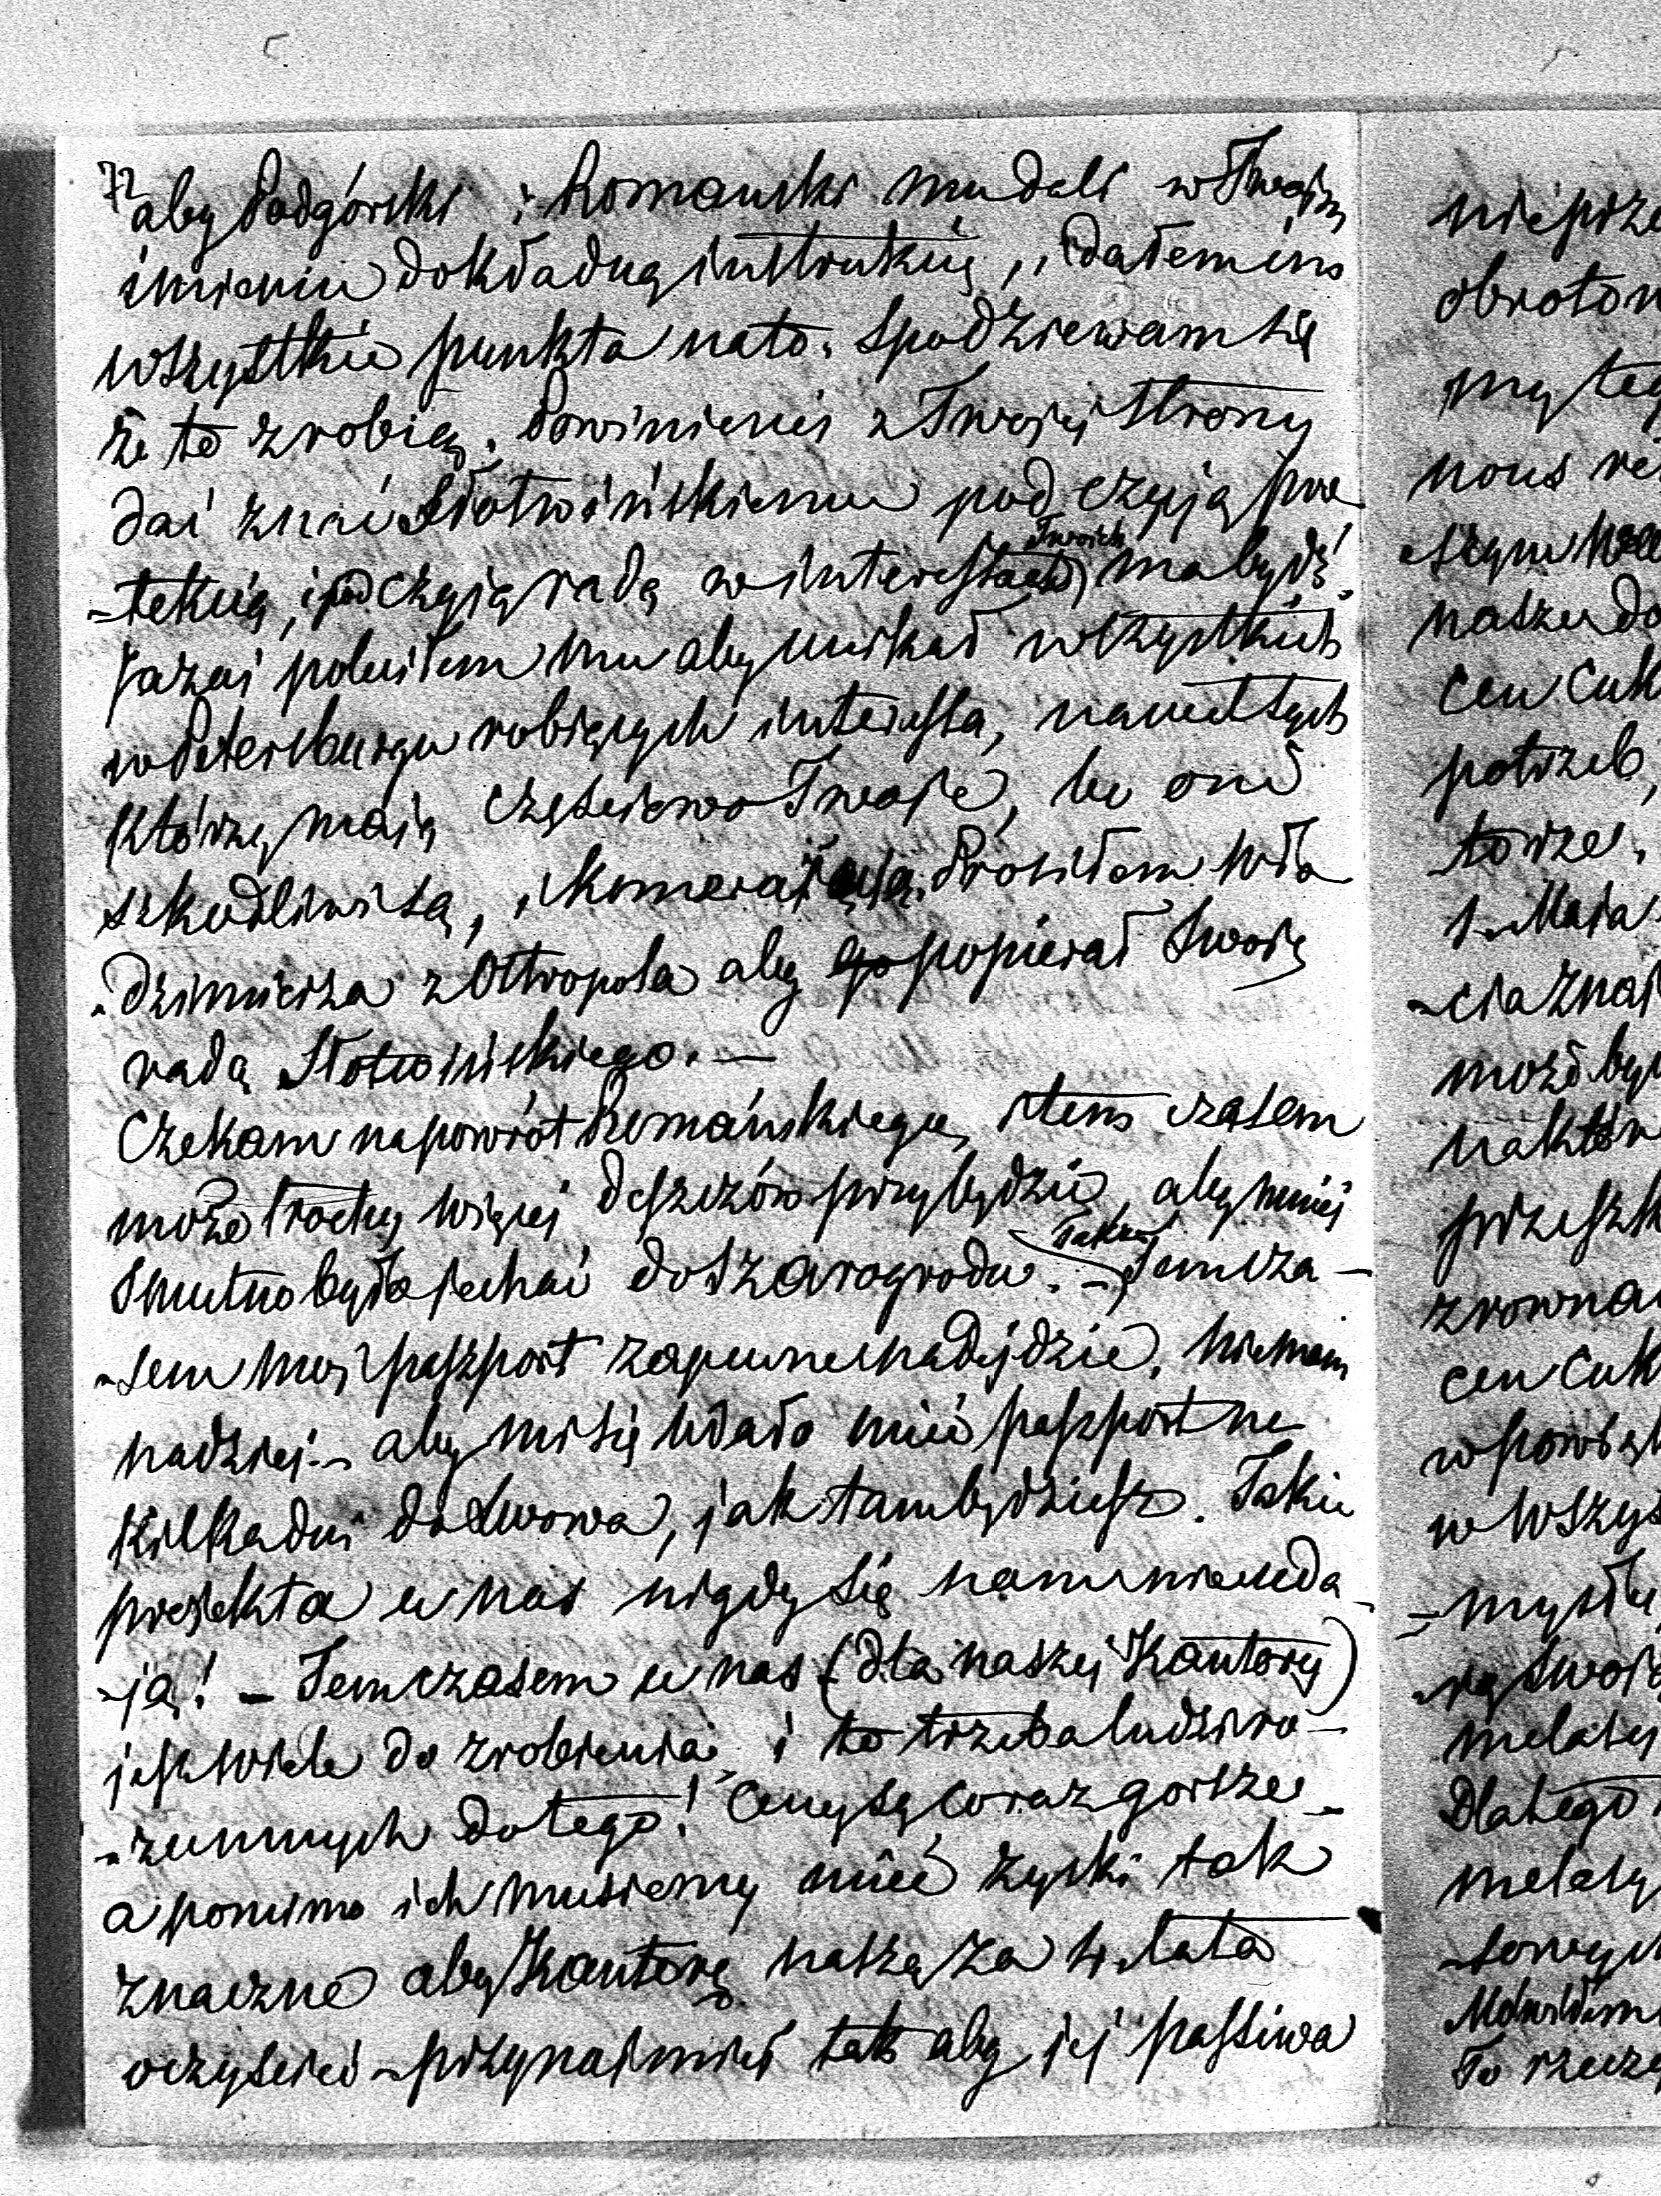 72
aby Podgórski i Romański mu dali w Twojém
imieniu dokładną instrukcię, i dałem im
wszystkie punkta na to. Spodziewam się
że to zrobią. Powinieneś z Twojéj strony
dać znać Słotwińskiemu pod czyją pro
-tekcią, i pod czyią radą w interessach Twoich ma bydź.
Ja zaś poleciłem mu aby unikał wszystkich
w Petersburgu robiących interessa, nawet tych
którzy mają częściowo Twoje, bo oni
szkodliwi są, i Prosiłem Wło
-dzimierza z Ostropola aby go popierał Swoją
radą Słotwińskiego. —
Czekam na powrót Romańskiego, i tém czasem
może trochę więcéj deszczów przybędzie, aby mniéj
smutno było jechać do Szarogrodu. — Także Tem cza —
-sem mój paszport zapewne nadejdzie. Nie mam
nadziei — aby mi się udało mieć paszport na
kilka dni do Lwowa, jak tam będziesz. Takie
projekta u nas nigdy się nam nie uda-
-ją! — Tem czasem u nas (dla naszéj Kantory)
jest wiele do zrobienia, i to trzeba ludzi ro —
-zumnych do tego! Ceny są coraz gorsze —
a pomimo ich musiemy mieć zyski tak
znaczne aby Kantorę naszą za 4 lata
oczyścić — przynajmniéj tak aby jéj passiwa
nie prze
obrotow
my teg
nous re
naszu do
cen cuk
potrzeb,
torze.
1. Maja
-cia znaj
może by
na któr
przeszk
zrowna
cen cuk
w powi
w wszys
-mysłu
-rą swoi
melasy
Dlatego
melasy
-sowych
Mówiłem
To rzecz